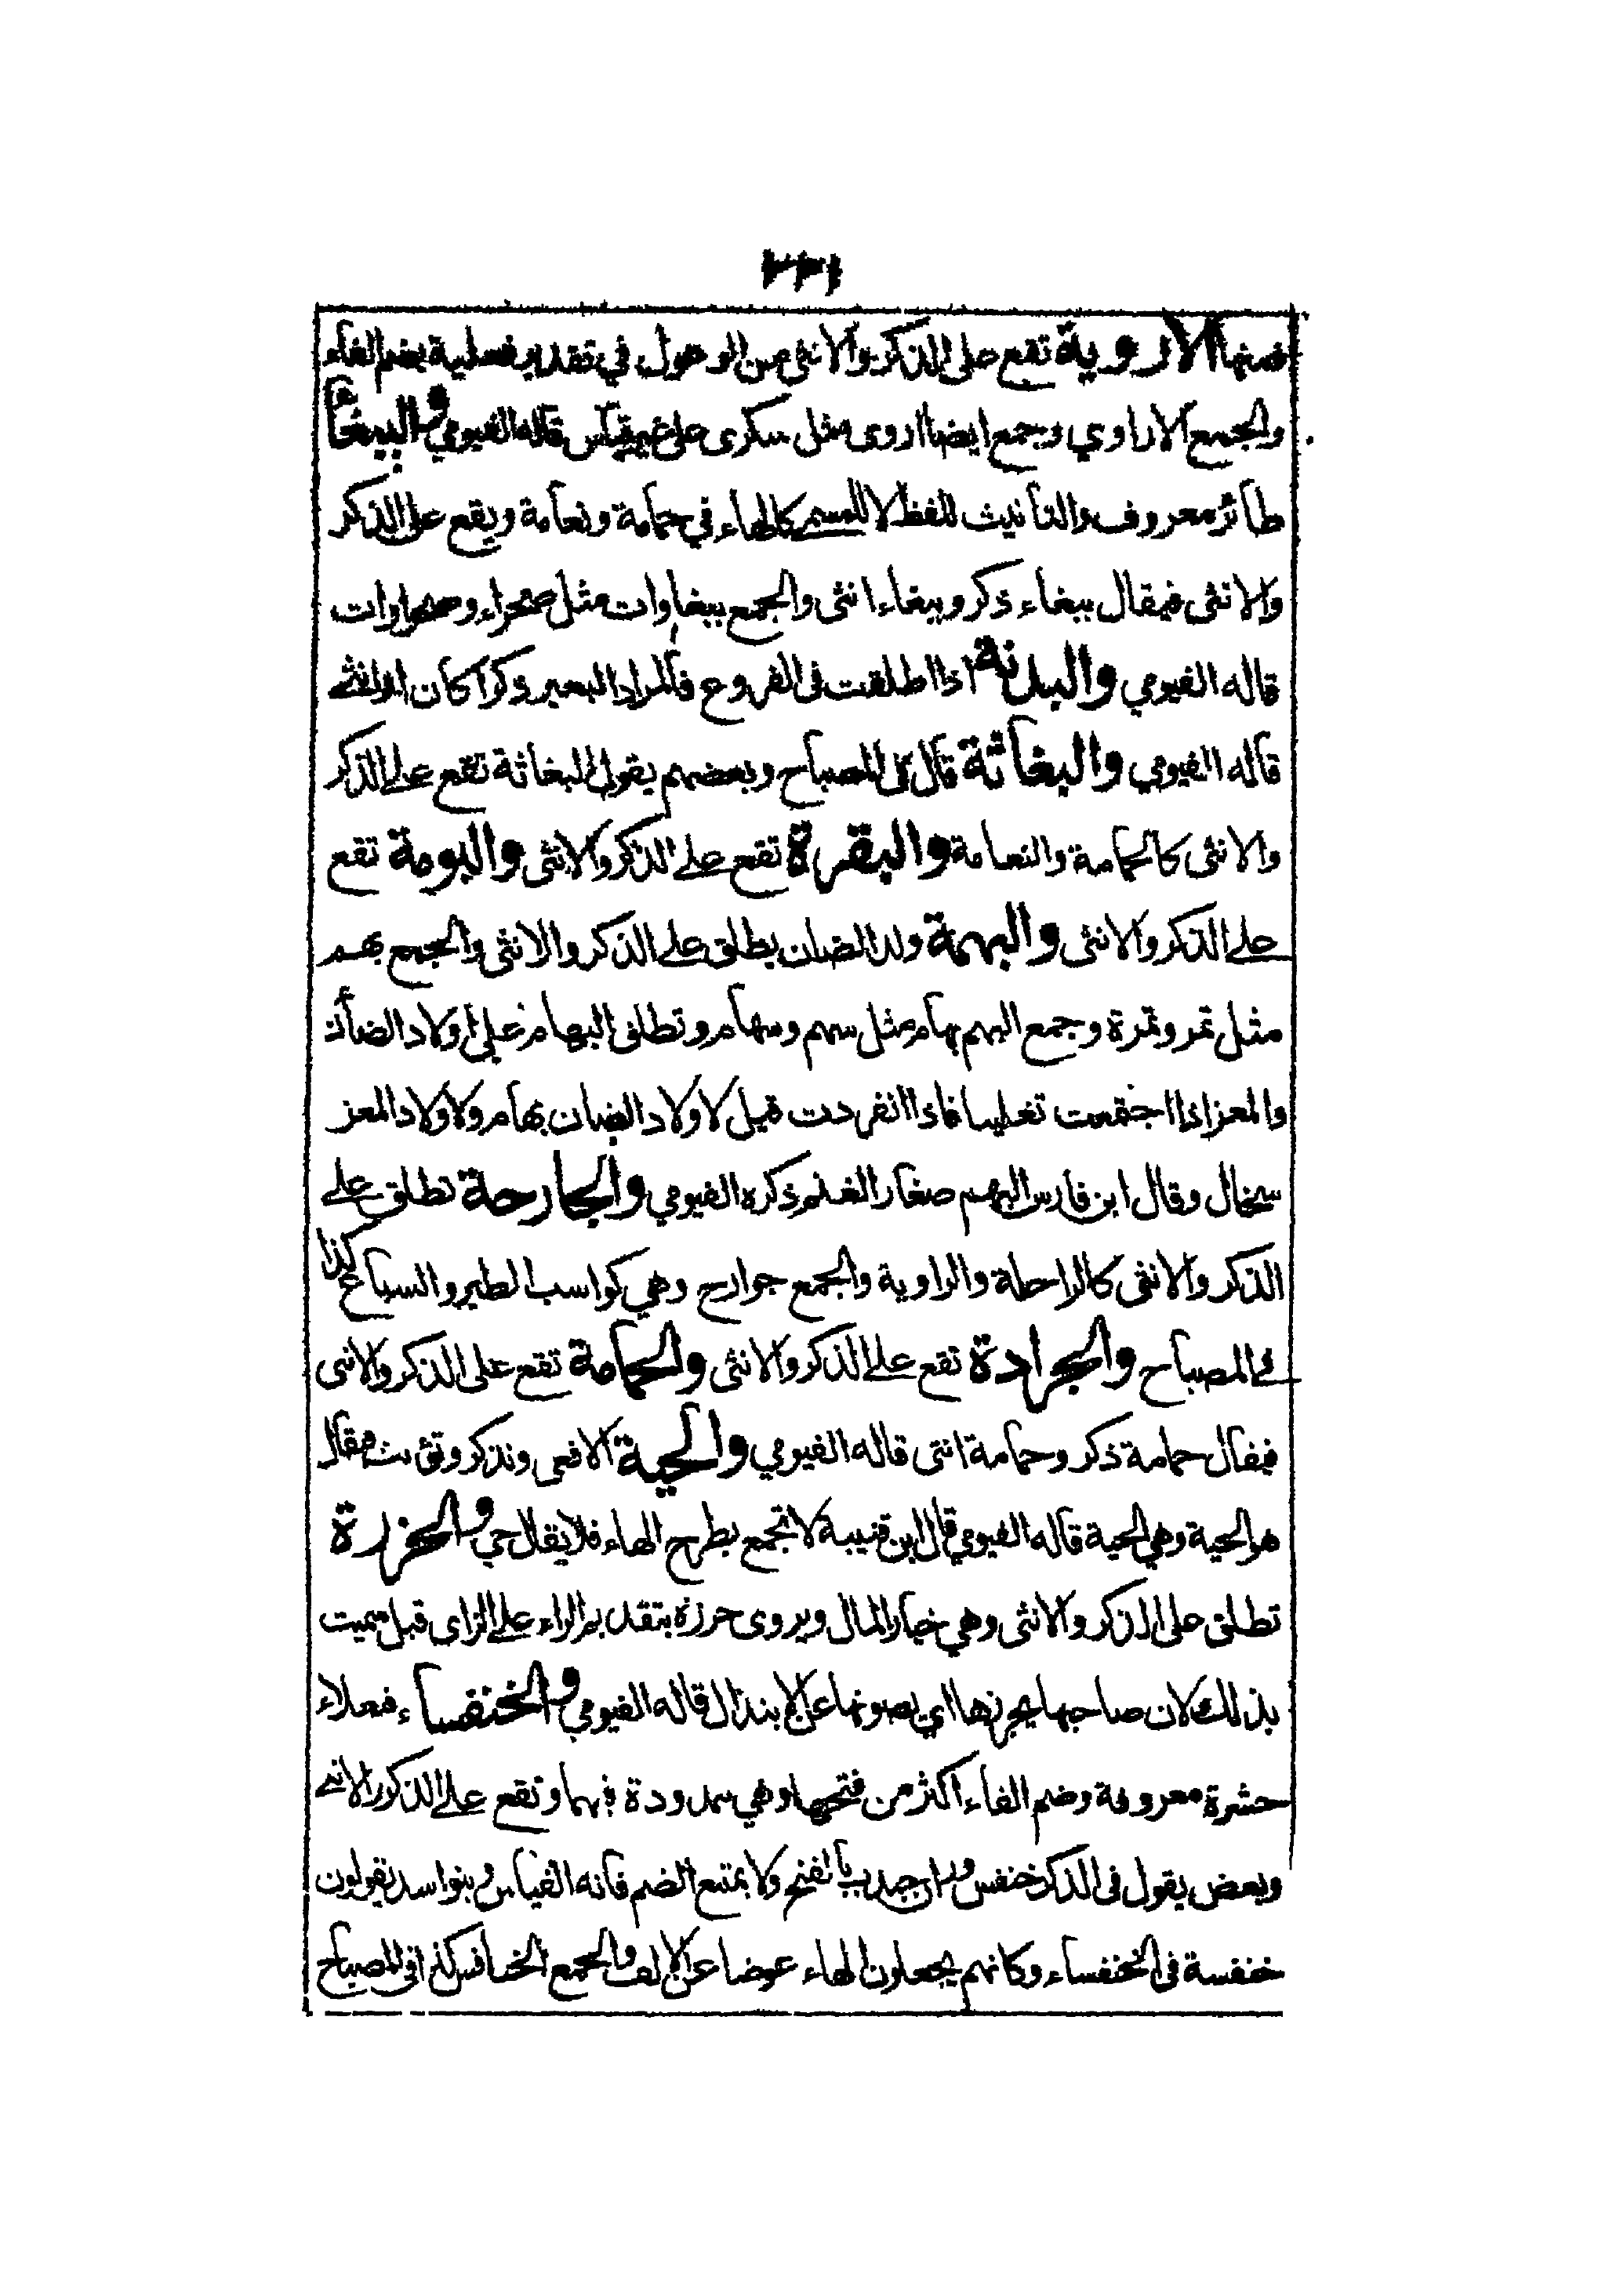 فمنها الاروية تقع على الذكر والانثى من الوعول في تقدير فعلية بضم الفاء
والجمع الاراوي وجمع ايضا اروى مثل سكرى على غير قياس قاله الفيومي والببغاء
طائر معروف والتأنيث للفظ لا للمسمى كالهاء في حمامة ونعامة ويقع على الذكر
والانثى فيقال ببغاء ذكر وببغاء انثى والجمع ببغاوات مثل صحراء وصحراوات
قاله الفيومي والبدنة اذا اطلقت في الفروع فالمراد البعير ذكرا كان او انثى
قاله الفيومي والبغاثة قال في المصباح وبعضهم يقول البغاثة تقع على الذكر
والانثى كالحمامة والنعامة والبقرة تقع على الذكر والانثى والبومة تقع
على الذكر والانثى والبهمة ولد الضان يطلق على الذكر والانثى والجمع بهم
مثل تمر وتمرة وجمع البهم بهام مثل سهم وسهام وتطلق البهام على اولاد الضأن
والمعز اذا اجتمعت تغليبا فاذا انفردت قيل لاولاد الضان بهام ولاولاد المعز
سخال وقال ابن فارس البهم صغار الغنم ذكره الفيومي والجارحة تطلق على
الذكر والانثى كالراحلة والراوية والجمع جوارح وهي كواسب الطير والسباع كذا
في المصباح والجرادة تقع على الذكر والانثى والحمامة تقع على الذكر والانثى
فيقال حمامة ذكر وحمامة انثى قاله الفيومي والحية الافعى وتذكر وتؤنث فيقال
هو الحية وهي الحية قاله الفيومي قال ابن قتيبة لا تجمع بطرح الهاء فلا يقال حي والحزرة
تطلق على الذكر والانثى وهي خيار المال ويروى حرزة بتقديم الراء على الزاى قيل سميت
بذلك لان صاحبها يحرزها اي يصونها عن الابتذال قاله الفيومي والخنفساء فعلاء
حشرة معروفة وضم الفاء اكثر من فتحها وهي ممدودة فيهما وتقع على الذكر والانثى
وبعض يقول في الذكر خنفس وزان جندب بالفتح ولا يمتنع الضم فانه القياس وبنو اسد يقولون
خنفسة في الخنفساء وكانهم يجعلون الهاء عوضا عن الالف والجمع الخنافس كذا في المصباح